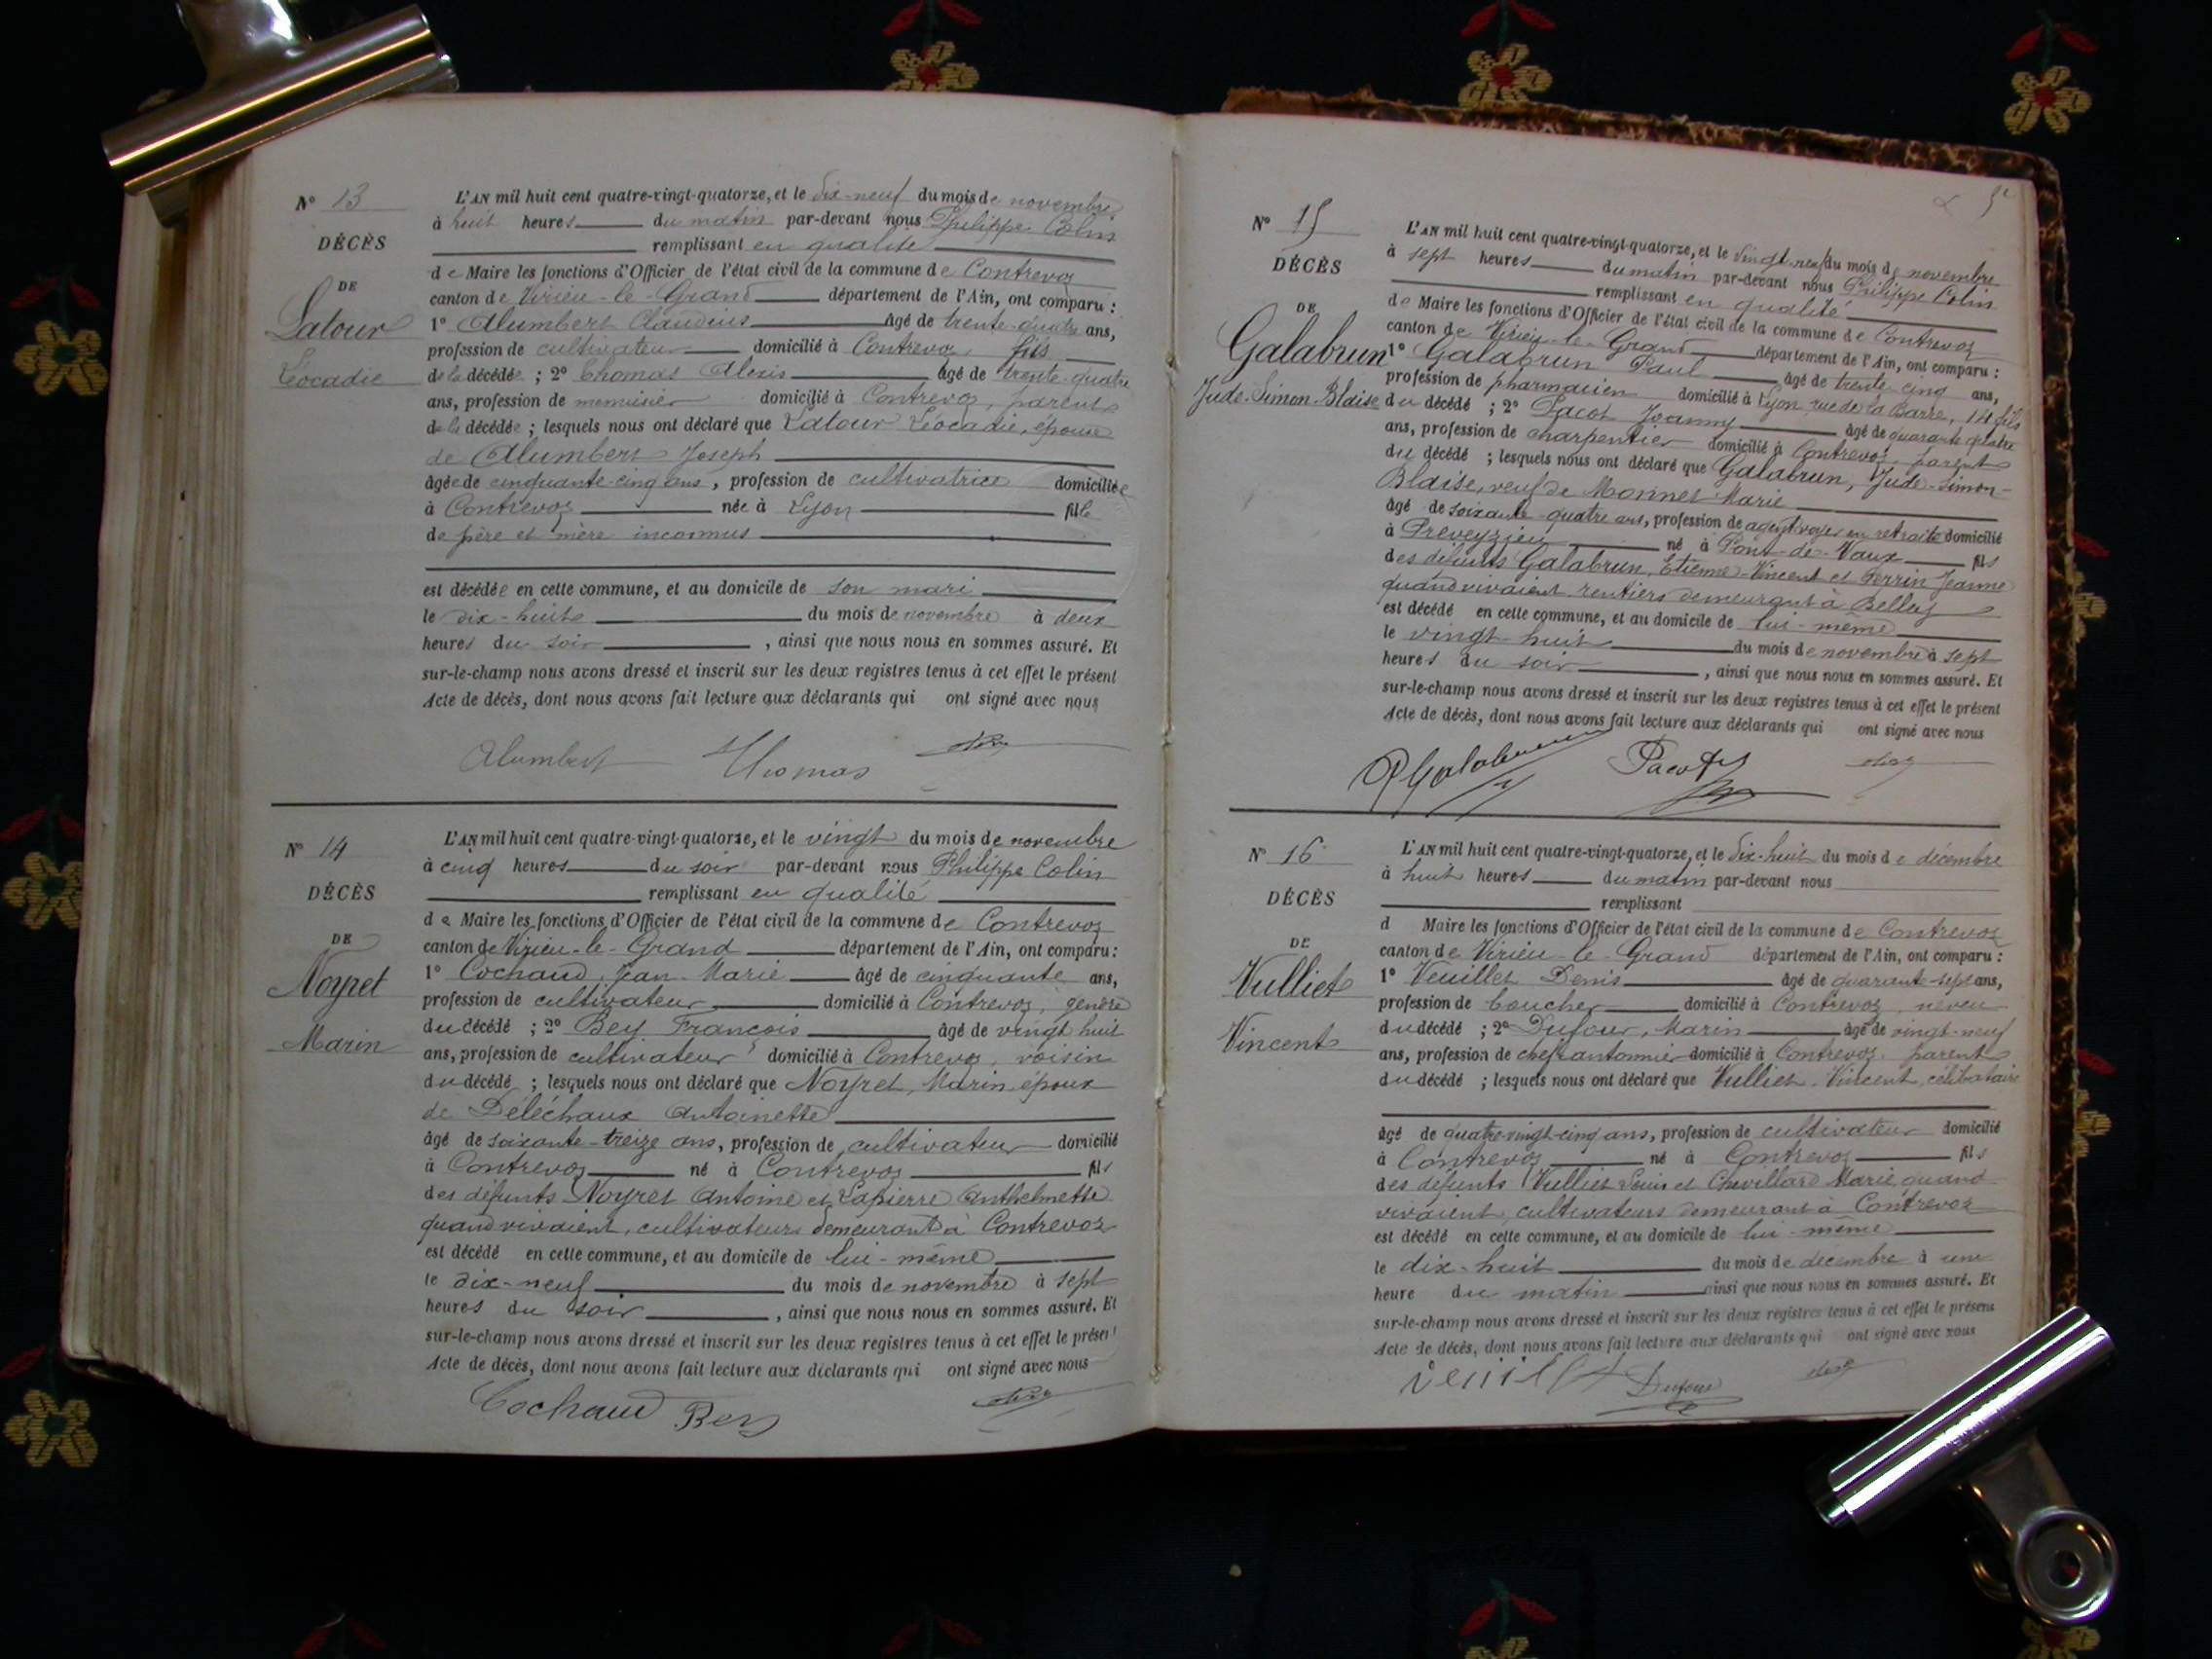 N° 13
DÉCÈS
DE
Latour
Léocadie
L'AN mil huit cent quatre-vingt-quatorze, et le dix-neuf du mois de novembre
à huit heures du matin par-devant nous Philippe Colin
remplissant en qualité
de Maire les fonctions d'Officier de l'état civil de la commune de Contrevoz
canton de Virieu-le-Grand département de l'Ain, ont comparu :
1° Alumbert Claudius âgé de trente-quatre ans,
profession de cultivateur domicilié à Contrevoz, fils
de la décédée ; 2° Thomas Alexis âgé de trente-quatre
ans, profession de menuisier domicilié à Contrevoz, parent
de la décédée ; lesquels nous ont déclaré que Latour Léocadie, épouse
de Alumbert Joseph
âgée de cinquante-cinq ans, profession de cultivatrice domiciliée
à Contrevoz née à Lyon fille
de père et mère inconnus
est décédée en cette commune, et au domicile de son mari
le dix-huit du mois de novembre à deux
heures du soir, ainsi que nous nous en sommes assuré. Et
sur-le-champ nous avons dressé et inscrit sur les deux registres tenus à cet effet le présent
Acte de décès, dont nous avons fait lecture aux déclarants qui ont signé avec nous
Alumbert Thomas
N° 14
DÉCÈS
DE
Noyret
Marin
L'AN mil huit cent quatre-vingt-quatorze, et le vingt du mois de novembre
à cinq heures du soir par-devant nous Philippe Colin
remplissant en qualité
de Maire les fonctions d'Officier de l'état civil de la commune de Contrevoz
canton de Virieu-le-Grand département de l'Ain, ont comparu :
1° Cochaud, Jean-Marie âgé de cinquante ans,
profession de cultivateur domicilié à Contrevoz, gendre
du décédé ; 2° Bey François âgé de vingt huit
ans, profession de cultivateur domicilié à Contrevoz, voisin
du décédé ; lesquels nous ont déclaré que Noyret, Marin époux
de Déléchaux Antoinette
âgé de soixante-treize ans, profession de cultivateur domicilié
à Contrevoz né à Contrevoz fils
des défunts Noyret Antoine et Lapierre Anthelmette
quand vivaient, cultivateurs demeurant à Contrevoz
est décédé en cette commune, et au domicile de lui-même
le dix-neuf du mois de novembre à sept
heures du soir, ainsi que nous nous en sommes assuré. Et
sur-le-champ nous avons dressé et inscrit sur les deux registres tenus à cet effet le présent
Acte de décès, dont nous avons fait lecture aux déclarants qui ont signé avec nous
Cochaud Bey
N° 15
DÉCÈS
DE
Galabrun
Jude-Simon-Blaise
L'AN mil huit cent quatre-vingt-quatorze, et le vingt-neuf du mois de novembre
à sept heures du matin par-devant nous Philippe Colin
remplissant en qualité
de Maire les fonctions d'Officier de l'état civil de la commune de Contrevoz
canton de Virieu-le-Grand département de l'Ain, ont comparu :
1° Galabrun Paul âgé de trente-cinq ans,
profession de pharmacien domicilié à Lyon rue de la Barre, 14 fils
du décédé ; 2° Pacot Joanny âgé de quarante quatre
ans, profession de charpentier domicilié à Contrevoz, parent
du décédé ; lesquels nous ont déclaré que Galabrun, Jude-Simon-
Blaise, veuf de Monnet Marie
âgé de soixante-quatre ans, profession de agent voyer en retraite domicilié
à Preveyzieu né à Pont-de-Vaux fils
des défunts Galabrun, Etienne-Vincent et Perrin Jeanne
quand vivaient rentiers demeurant à Belley
est décédé en cette commune, et au domicile de lui-même
le vingt-huit du mois de novembre à sept
heures du soir, ainsi que nous nous en sommes assuré. Et
sur-le-champ nous avons dressé et inscrit sur les deux registres tenus à cet effet le présent
Acte de décès, dont nous avons fait lecture aux déclarants qui ont signé avec nous
PGalabrun Pacot
N° 16
DÉCÈS
DE
Vulliet
Vincent
L'AN mil huit cent quatre-vingt-quatorze, et le dix-huit du mois de décembre
à huit heures du matin par-devant nous
remplissant
d Maire les fonctions d'Officier de l'état civil de la commune de Contrevoz
canton de Virieu-le-Grand département de l'Ain, ont comparu :
1° Veuillet Denis âgé de quarante-sept ans,
profession de boucher domicilié à Contrevoz, neveu
du décédé ; 2° Dufour, Marin âgé de vingt-neuf
ans, profession de chef cantonnier domicilié à Contrevoz, parent
du décédé ; lesquels nous ont déclaré que Vulliet, Vincent, célibataire
âgé de quatre-vingt-cinq ans, profession de cultivateur domicilié
à Contrevoz né à Contrevoz fils
des défunts Vulliet Louis et Chevillard Marie, quand
vivaient, cultivateurs demeurant à Contrevoz
est décédé en cette commune, et au domicile de lui-même
le dix-huit du mois de décembre à une
heure du matin ainsi que nous nous en sommes assuré. Et
sur-le-champ nous avons dressé et inscrit sur les deux registres tenus à cet effet le présent
Acte de décès, dont nous avons fait lecture aux déclarants qui ont signé avec nous
Veuillet Dufour